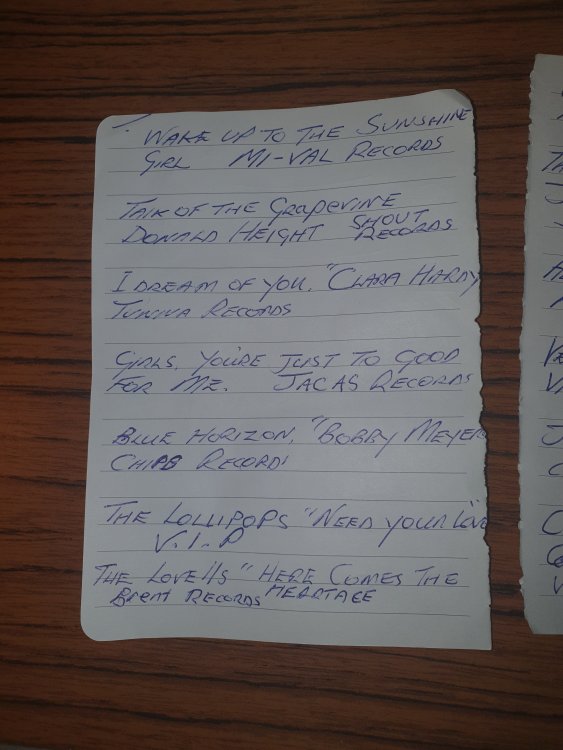 WAKE UP TO THE SUNSHINE
GIRL MI-VAL RECORDS
TALK OF THE GRAPEVINE
DONALD HEIGHT SHOUT RECORDS
I DREAM OF YOU, "CLARA HARDY
TUNIVA RECORDS
GIRLS, YOU'RE JUST TO GOOD
FOR ME. JACAS RECORDS
BLUE HORIZON, "BOBBY MEYER
RECORDS
THE LOLLIPOPS "NEED YOUR LOVE
V.I.P
THE LOVElls "HERE COMES THE
Brent RECORDS HEARTACE